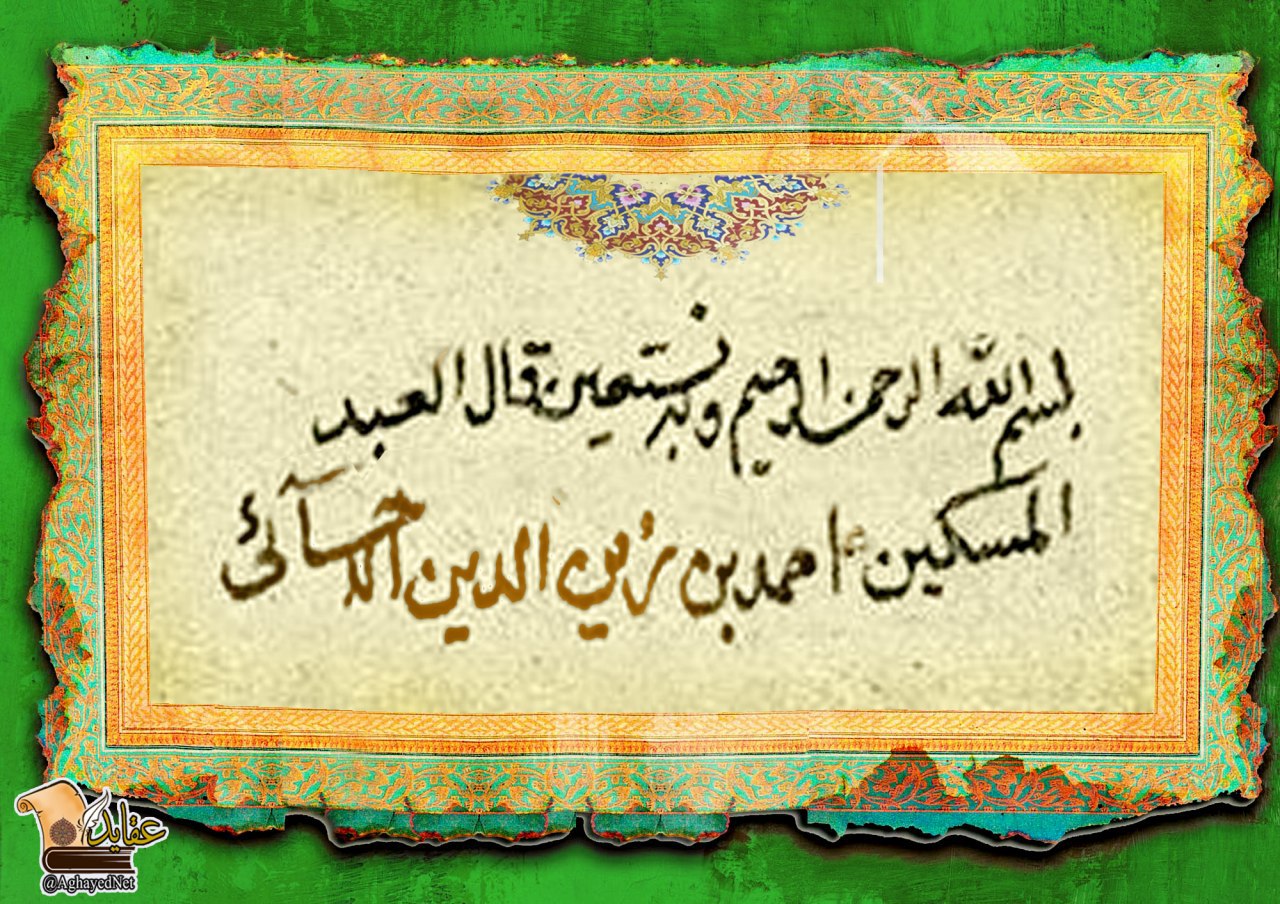 بسم الله الرحمن الرحیم وبه نستعین قال العبد
المسکین احمد بن زین الدین الاحسآئی
عقاید
@AghayedNet